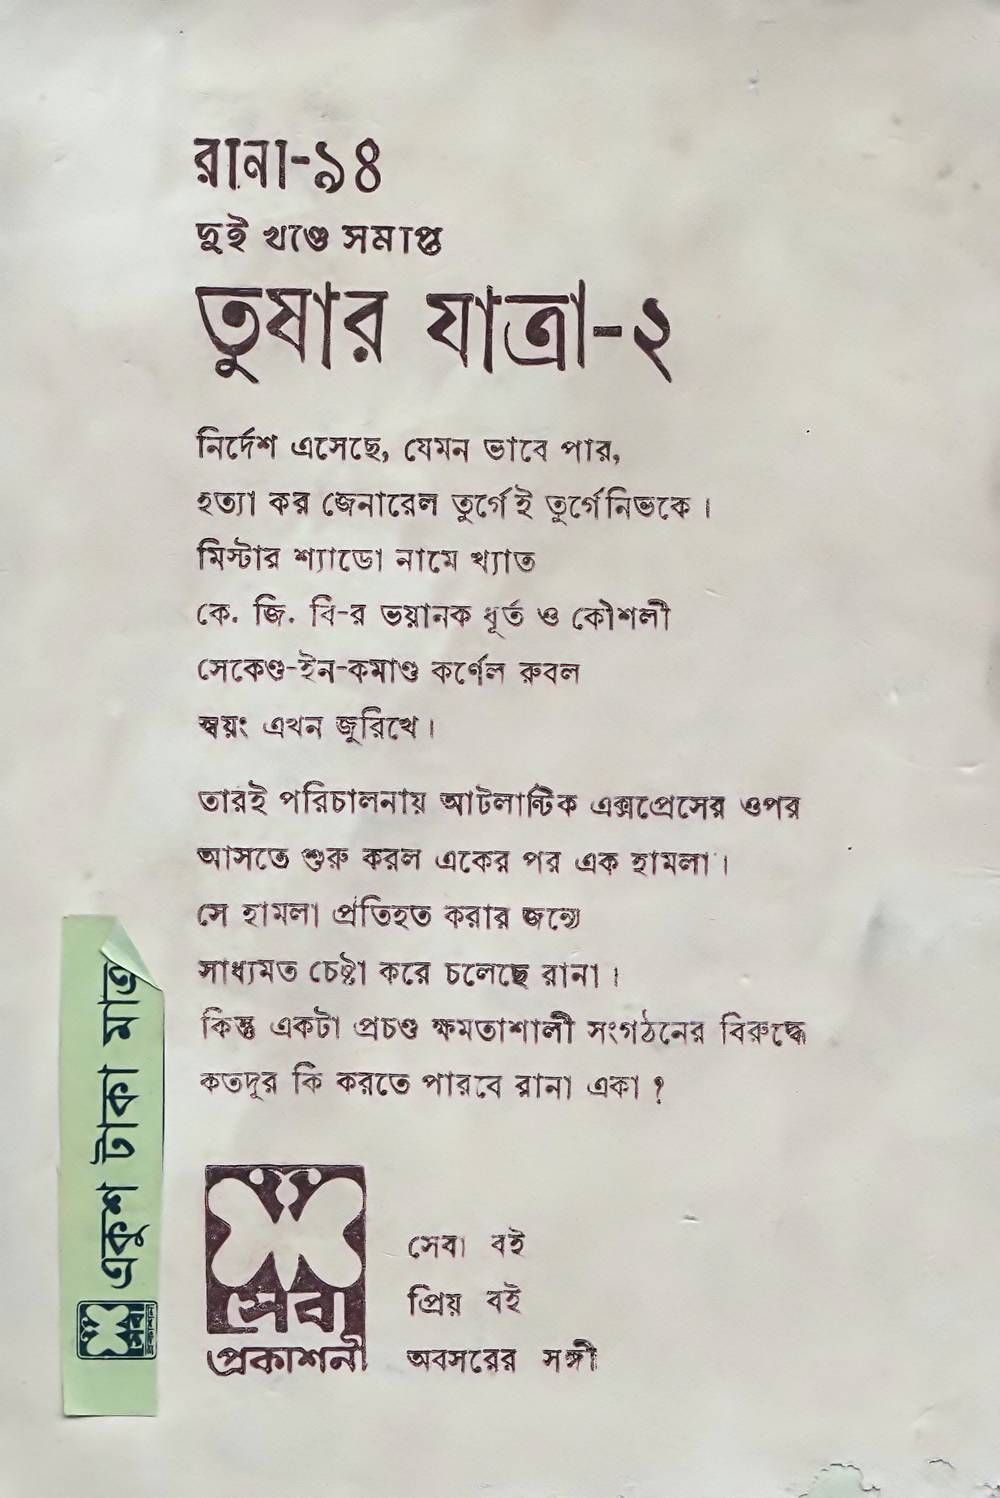 রানা-৯৪
দুই খণ্ডে সমাপ্ত
তুষার যাত্রা-২
নির্দেশ এসেছে, যেমন ভাবে পার,
হত্যা কর জেনারেল তুর্গেই তুর্গেনিভকে।
মিস্টার শ্যাডো নামে খ্যাত
কে. জি. বি-র ভয়ানক ধূর্ত ও কৌশলী
সেকেণ্ড-ইন-কমাণ্ড কর্ণেল রুবল
স্বয়ং এখন জুরিখে।
তারই পরিচালনায় আটলান্টিক এক্সপ্রেসের ওপর
আসতে শুরু করল একের পর এক হামলা।
সে হামলা প্রতিহত করার জন্যে
সাধ্যমত চেষ্টা করে চলেছে রানা।
কিন্তু একটা প্রচণ্ড ক্ষমতাশালী সংগঠনের বিরুদ্ধে
কতদূর কি করতে পারবে রানা একা?
একুশ টাকা মাত্র
সেবা
প্রকাশনী
সেবা
প্রকাশনী
সেবা বই
প্রিয় বই
অবসরের সঙ্গী